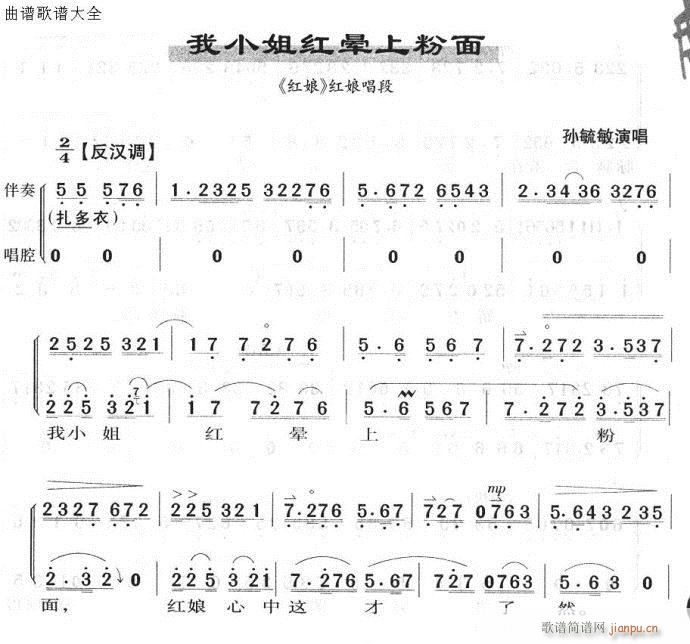 曲谱歌谱大全
我小姐红晕上粉面
《红娘》红娘唱段
2/4 【反汉调】
孙毓敏演唱
伴奏 5 5 576 | 1.2325 32276 | 5.672 6543 | 2.3436 3276
(扎多衣)
唱腔 0 0 | 0 0 | 0 0 | 0 0
2525 321 | 17 7276 | 5.6 567 | 7.272 3.537
225 321 | 17 7276 | 5.6 567 | 7.272 3.537
我小姐 红 晕 上 粉
mp
2327 672 | 225 321 | 7.276 5.67 | 727 0763 | 5.643 235
2.32 0 | 225 321 | 7.276 5.67 | 727 0763 | 5.63 0
面, 红娘 心中这 才 了 然。
歌谱简谱网
jianpu.cn